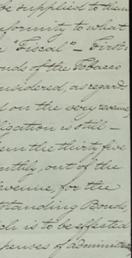 be supplied to them
formity to what
" Fiscal" - First
onds of the Tobacco
onsidered, as regard
d on the
ligation is still -
em the thirt five
nthly, out of the
evenue, for the
tstanding Bonds,
ch is to be effected
penses of administra